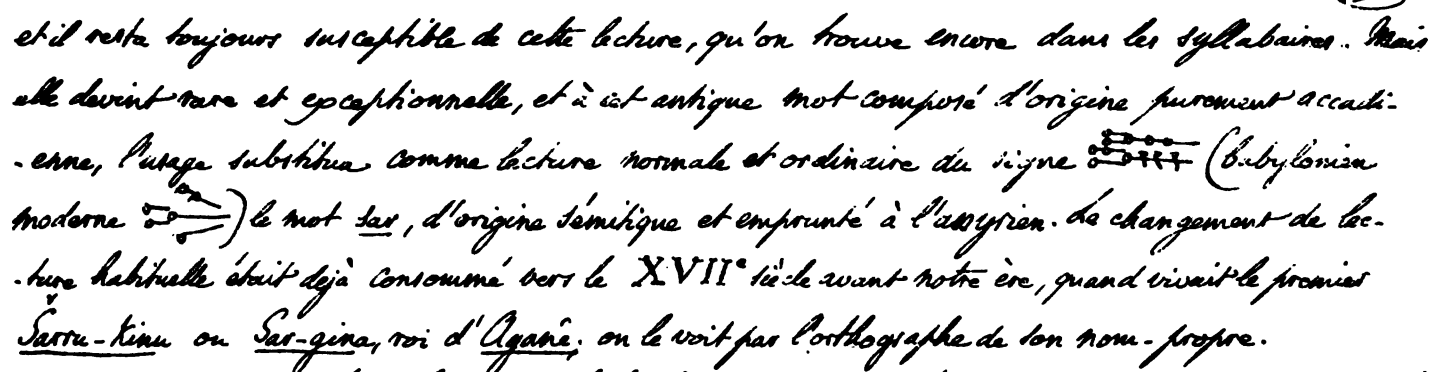 et il resta toujours susceptible de cette lecture, qu'on trouve encore dans les syllabaires. Mais
elle devint rare et exceptionnelle, et à cet antique mot composé d'origine purement accadi-
-enne, l'usage substitua comme lecture normale et ordinaire du signe (babylonien
moderne ) le mot sar, d'origine sémitique et emprunté à l'assyrien. Le changement de lec-
-ture habituelle était déjà consommé vers le XVIIe siècle avant notre ère, quand vivait le premier
Šarru-kinu ou Sar-gina, roi d'Aganê; on le voit par l'orthographe de son nom-propre.